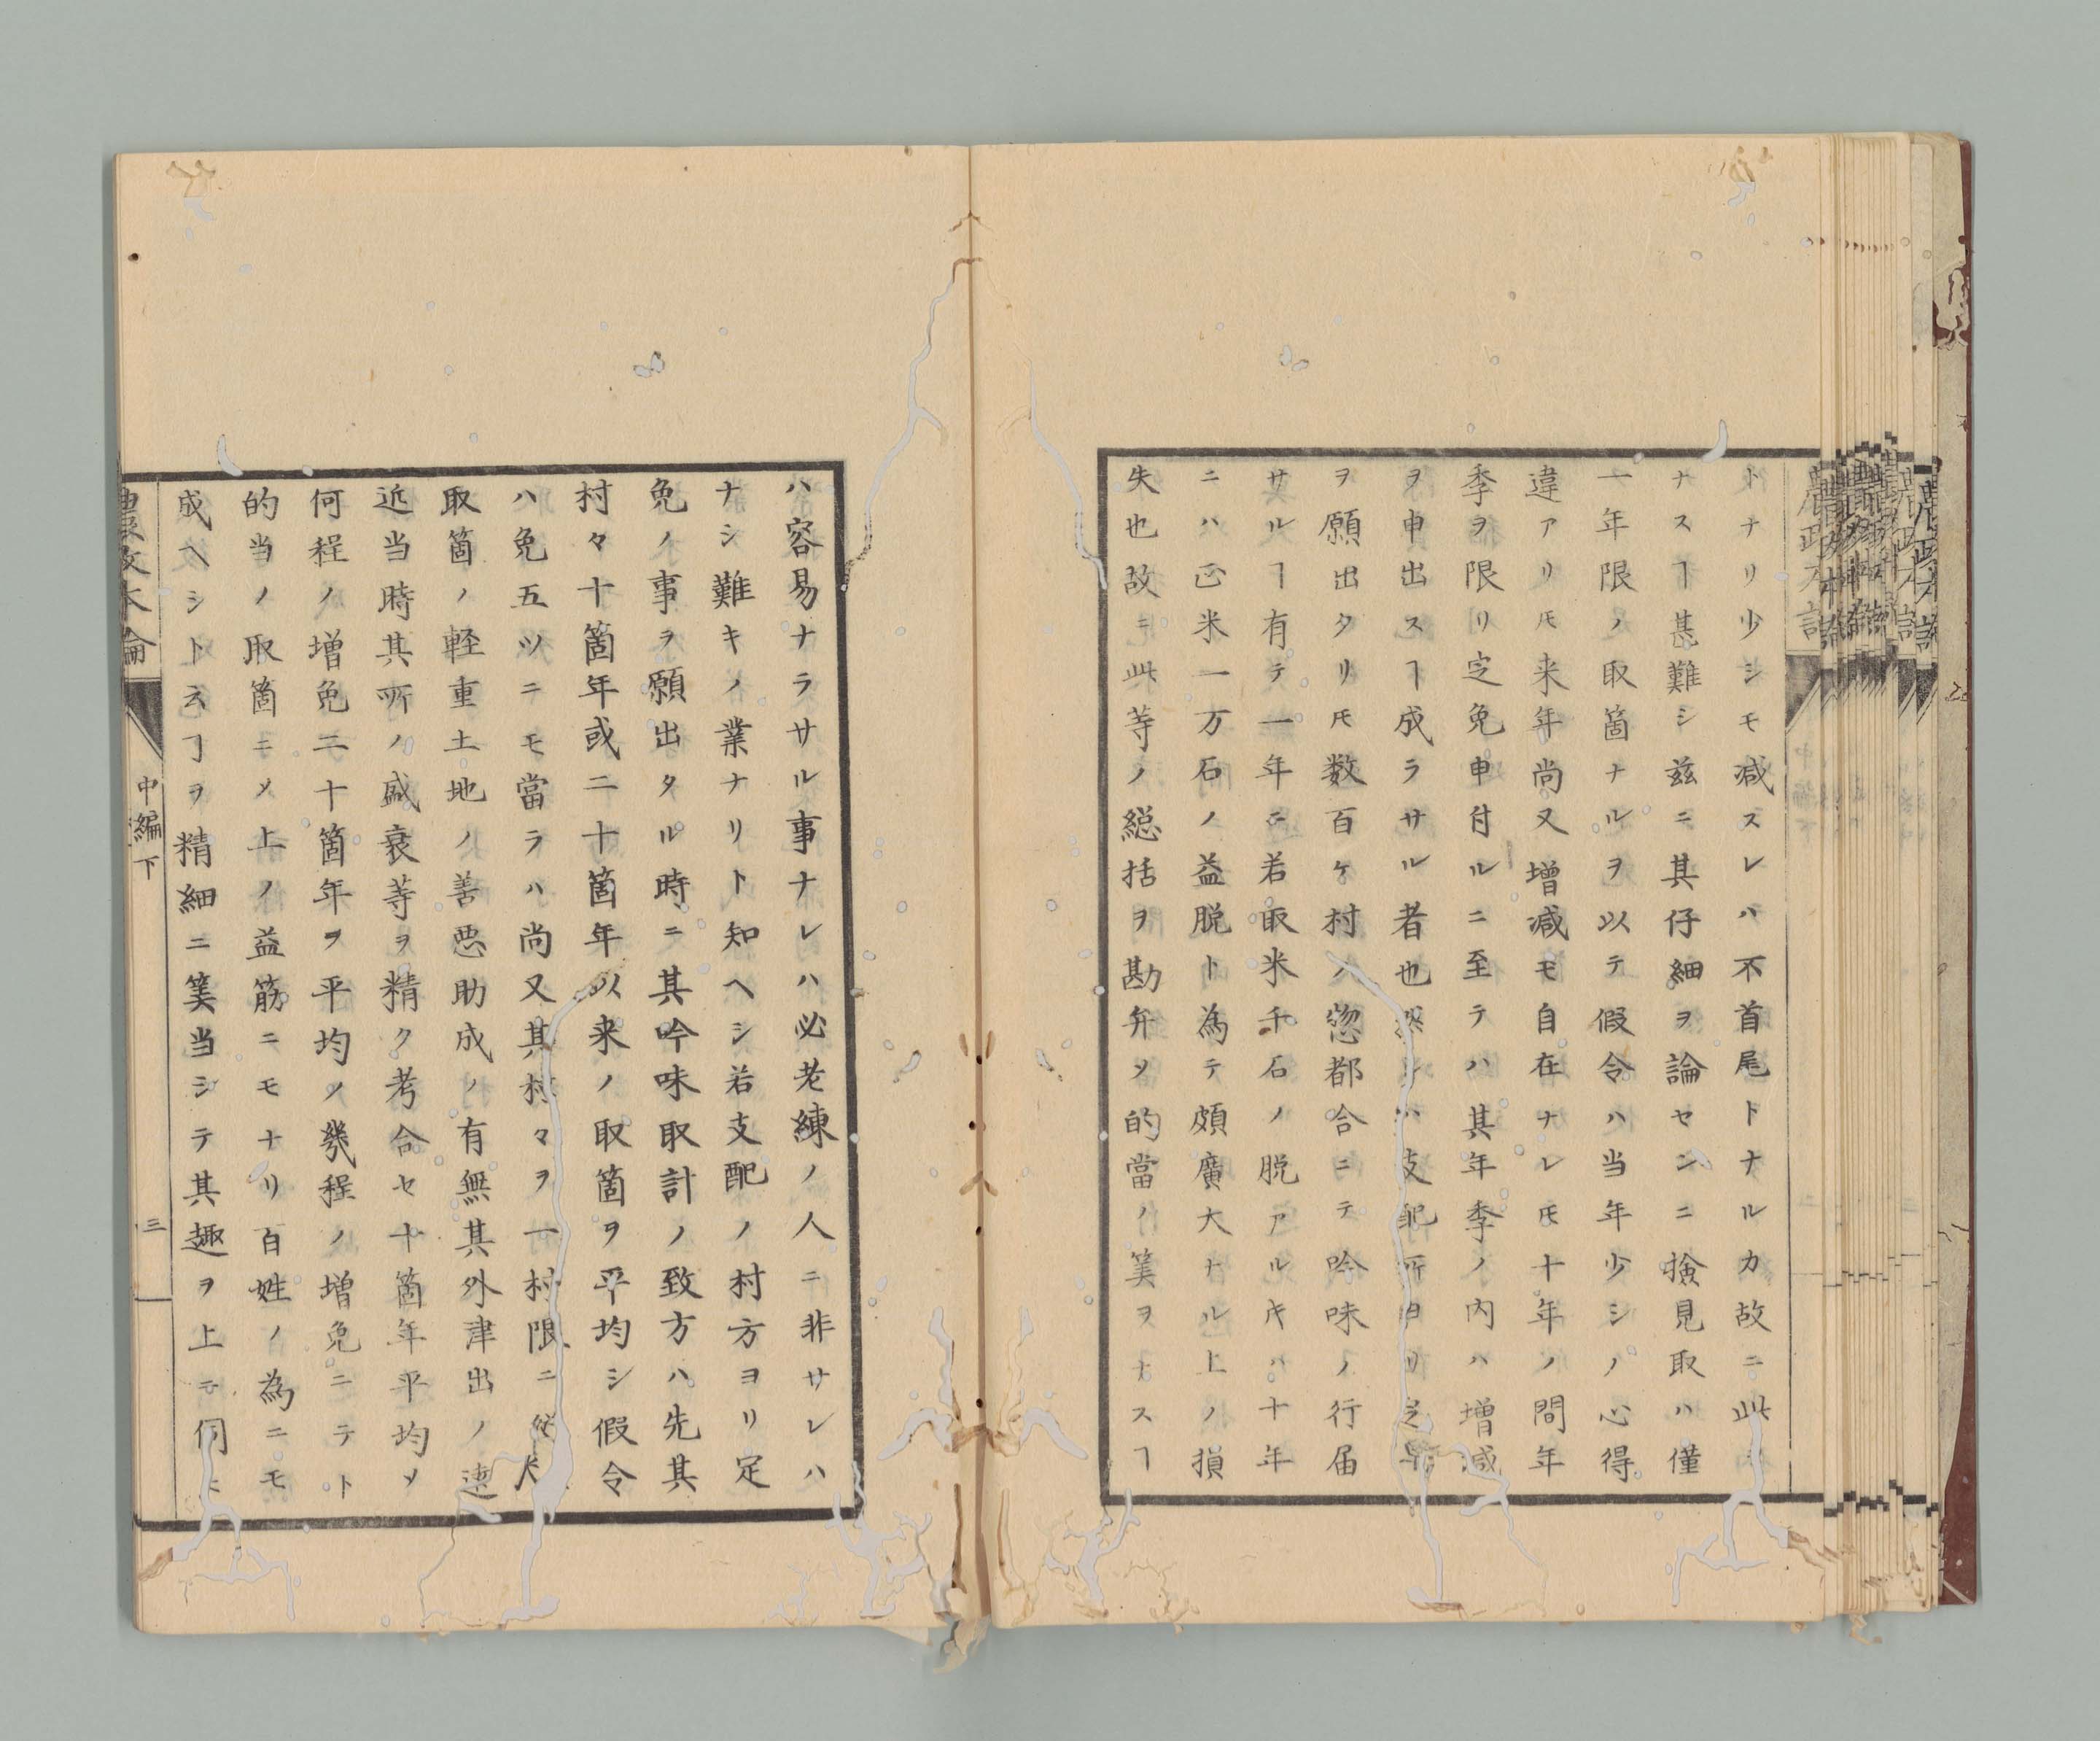 トナリ少シモ減スレハ不首尾トナルカ故ニ此
ナスヿ甚難シ茲ニ其仔細ヲ論センニ撿見取ハ僅
一年限ノ取箇ナルヲ以テ假令ハ当年少シノ心得
違アリ𪜈来年尚又増減モ自在ナレ𪜈十年ノ間年
季ヲ限リ定免申付ルニ至テハ其年季ノ内ハ増減
ヲ申出スヿ成ラサル者也 ハ支配所
ヲ願出タリ𪜈数百ケ村ハ惣都合ニテ吟味ノ行届
サルヿ有テ一年ニ若取米千石ノ脱アルキハ十年
ニハ正米一万石ノ益脱ト為テ頗廣大ナル上ノ損
失也故ニ此等ノ総括ヲ勘弁メ的當ノ筭ヲナスヿ
ハ容易ナラサル事ナレハ必老練ノ人ニ非サレハ
ナシ難キノ業ナリト知ヘシ若支配ノ村方ヨリ定
免ノ事ヲ願出タル時ニ其吟味取計ノ致方ハ先其
村々十箇年或二十箇年以来ノ取箇ヲ平均シ假令
ハ免五ツニモ當ラハ尚又其村々ヲ一村限ニ
取箇ノ軽重土地ノ善悪助成ノ有無其外津出ノ遠
近当時其所ノ盛衰等ヲ精ク考合セ十箇年平均メ
何程ノ増免二十箇年ヲ平均ノ幾程ノ増免ニテト
的当ノ取箇ニメ上ノ益筋ニモナリ百姓ノ為ニモ
成ヘシト云ヿヲ精細ニ筭当シテ其趣ヲ上ニ伺
農政本論
中編下
三